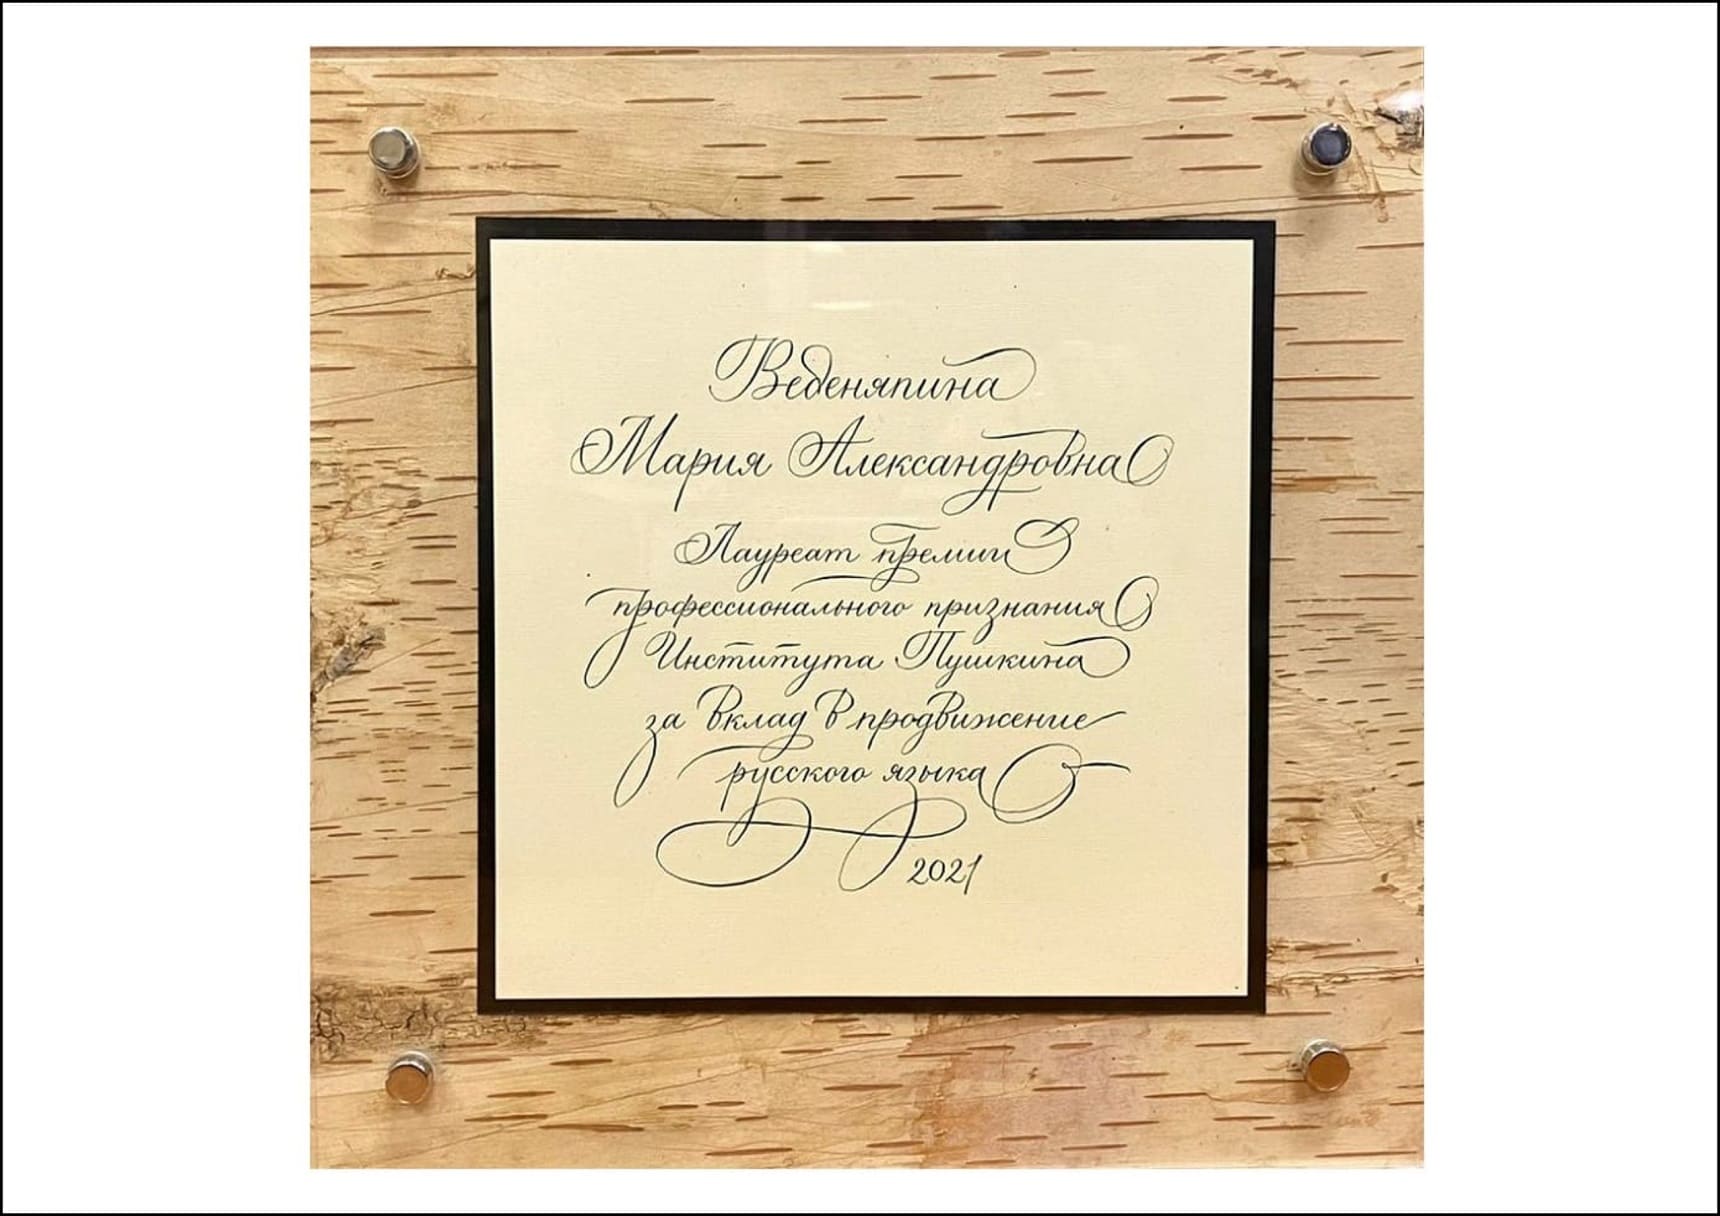 Веденяпина
Мария Александровна
Лауреат премии
профессионального признания
Института Пушкина
за вклад в продвижение
русского языка
2021